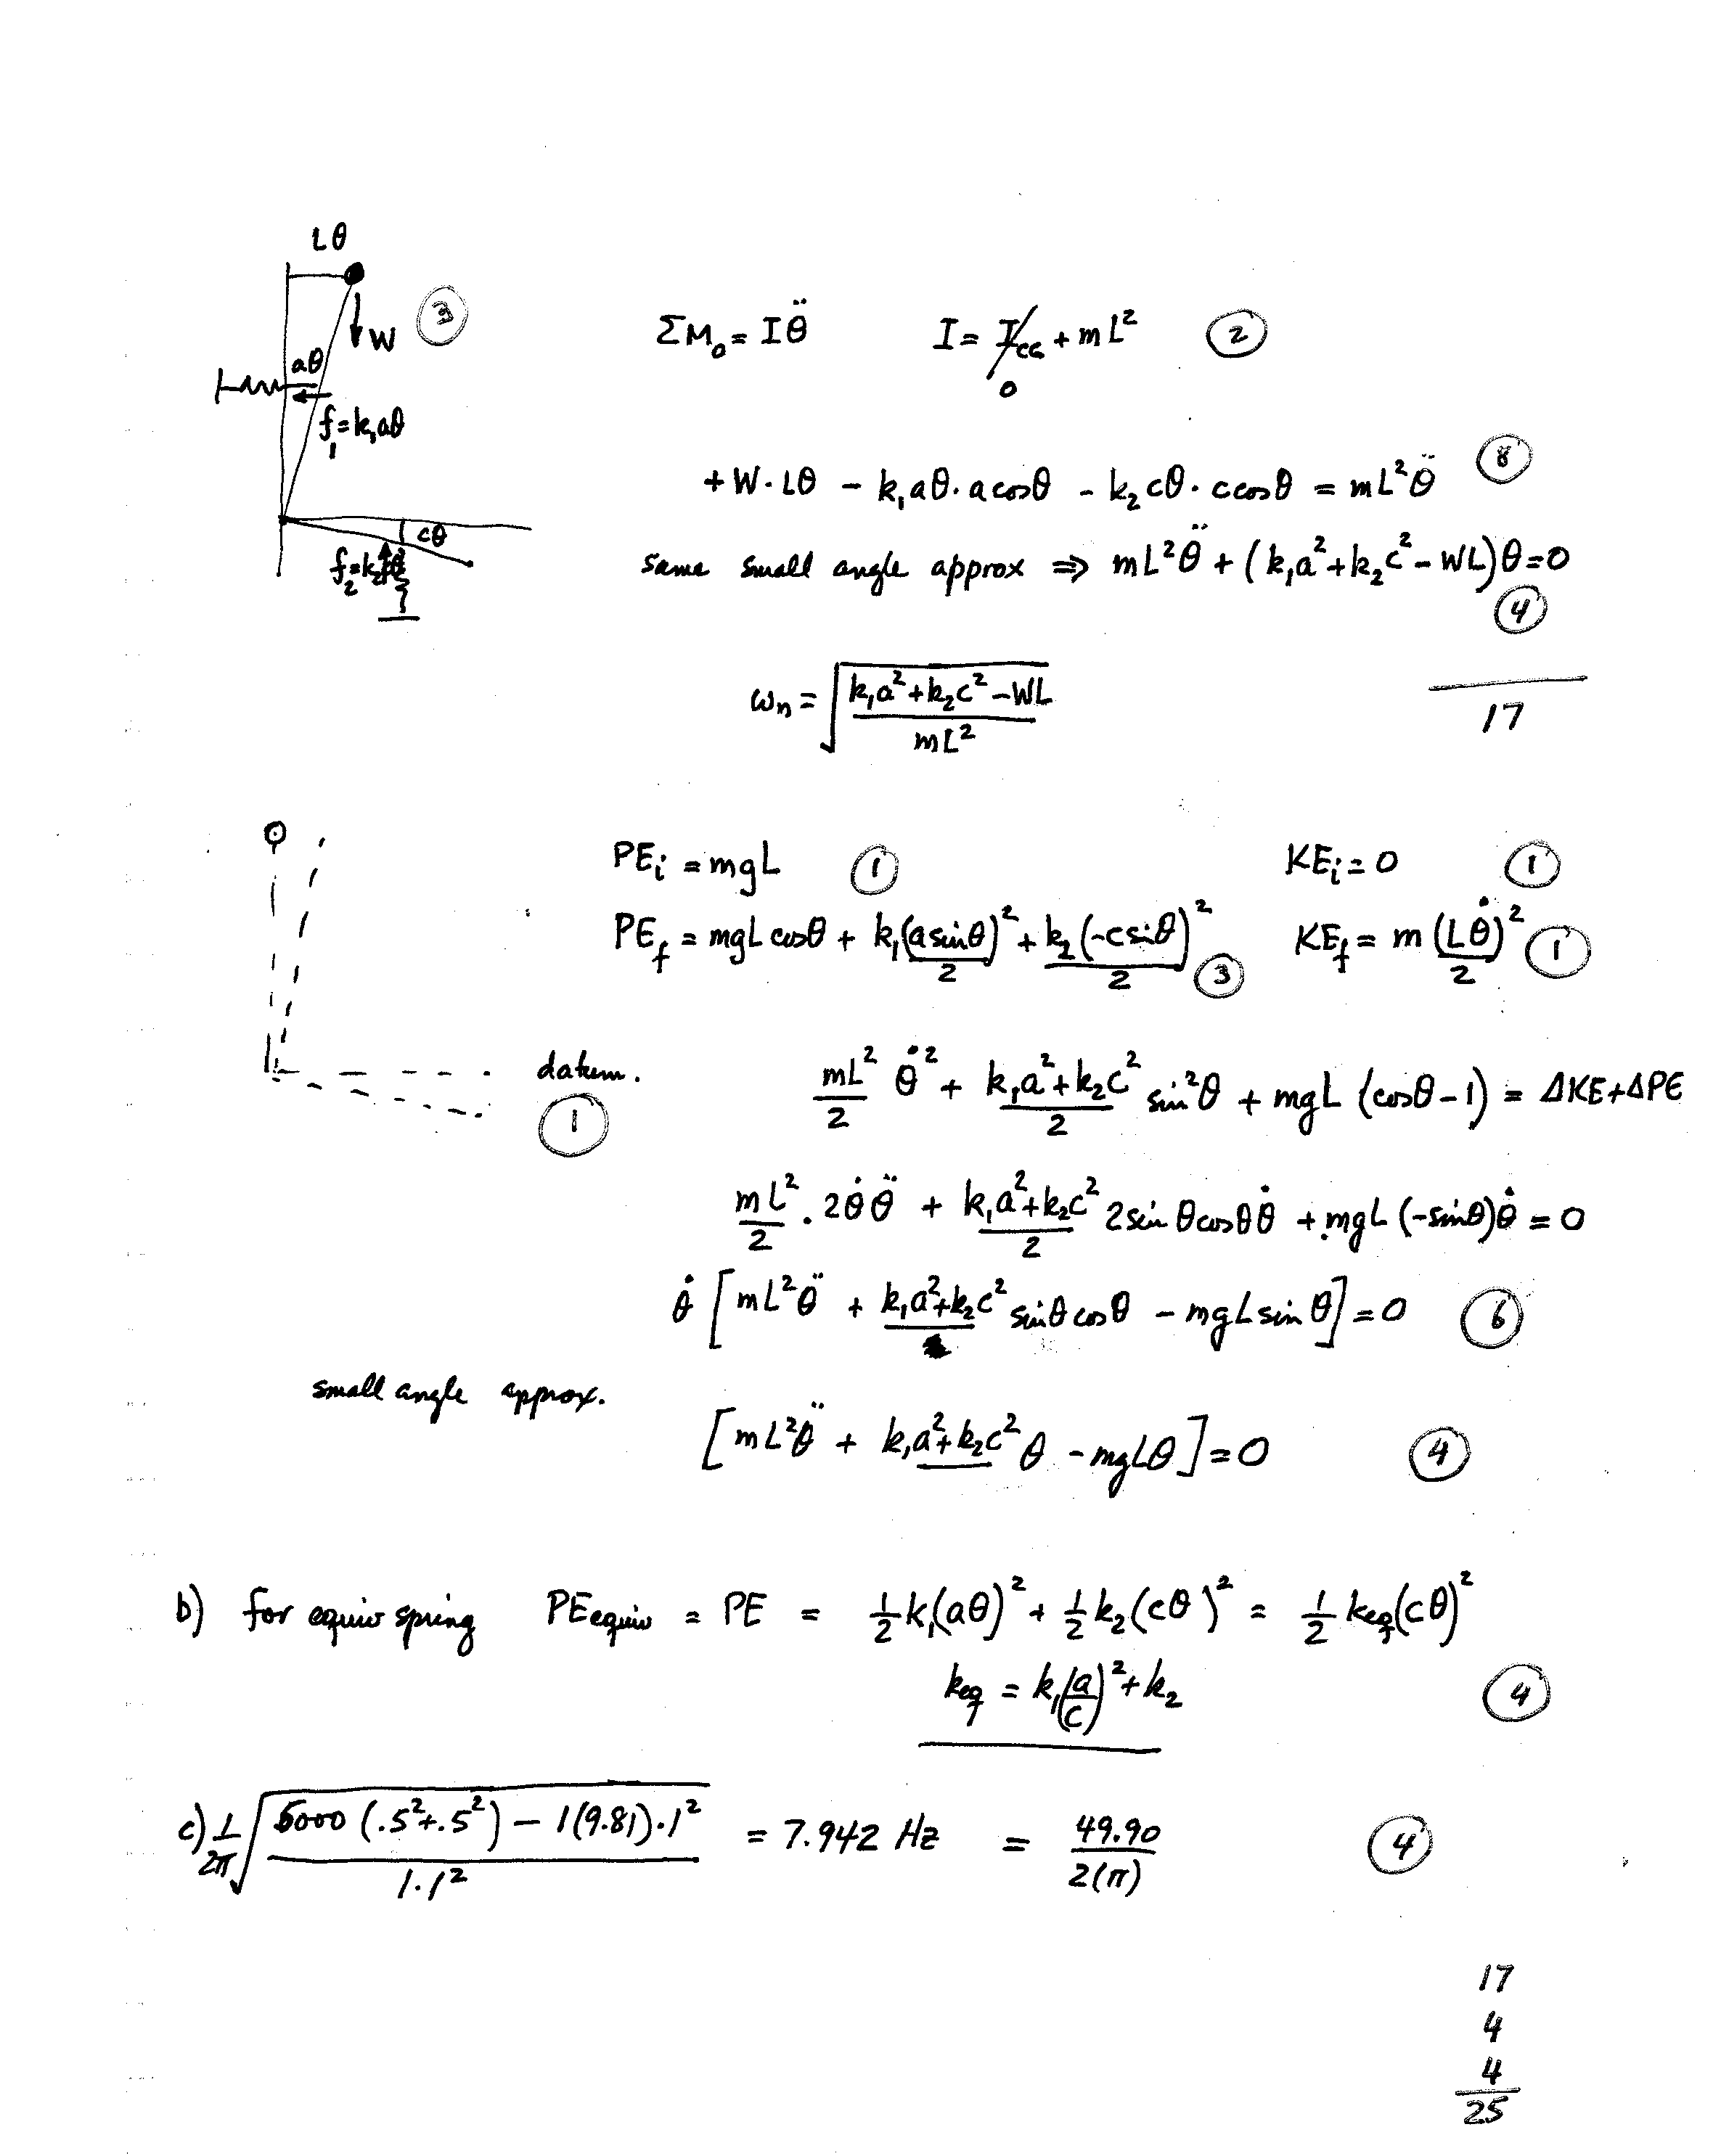 Lθ
W ③
aθ
f₁=k₁aθ
cθ
f₂=k₂cθ
ΣM₀ = Iθ̈ I = I_CG + mL² ②
0
+W·Lθ − k₁aθ·acosθ − k₂cθ·ccosθ = mL²θ̈ ⑧
same small angle approx ⇒ mL²θ̈ + (k₁a²+k₂c²−WL)θ=0
④
ωₙ = √((k₁a²+k₂c²−WL)/(mL²))
17
PEᵢ = mgL ① KEᵢ = 0 ①
PE_f = mgL cosθ + k₁(asinθ)²/2 + k₂(-csinθ)²/2 ③ KE_f = m(Lθ̇)²/2 ①
datum.
①
mL²/2 θ̇² + (k₁a²+k₂c²)/2 sin²θ + mgL (cosθ−1) = ΔKE+ΔPE
mL²/2 · 2θ̇θ̈ + (k₁a²+k₂c²)/2 2sinθcosθθ̇ + mgL(-sinθ)θ̇ = 0
θ̇ [mL²θ̈ + k₁a²+k₂c² sinθcosθ − mgLsinθ] = 0 ⑥
small angle approx.
[mL²θ̈ + k₁a²+k₂c² θ − mgLθ] = 0 ④
b) for equiv spring PEequiv = PE = ½k₁(aθ)² + ½k₂(cθ)² = ½keq(cθ)²
keq = k₁(a/c)² + k₂ ④
c) 1/2π √((5000(.5²+.5²) − 1(9.81)·1²)/(1·1²)) = 7.942 Hz = 49.90/2(π) ④
17
4
4
25